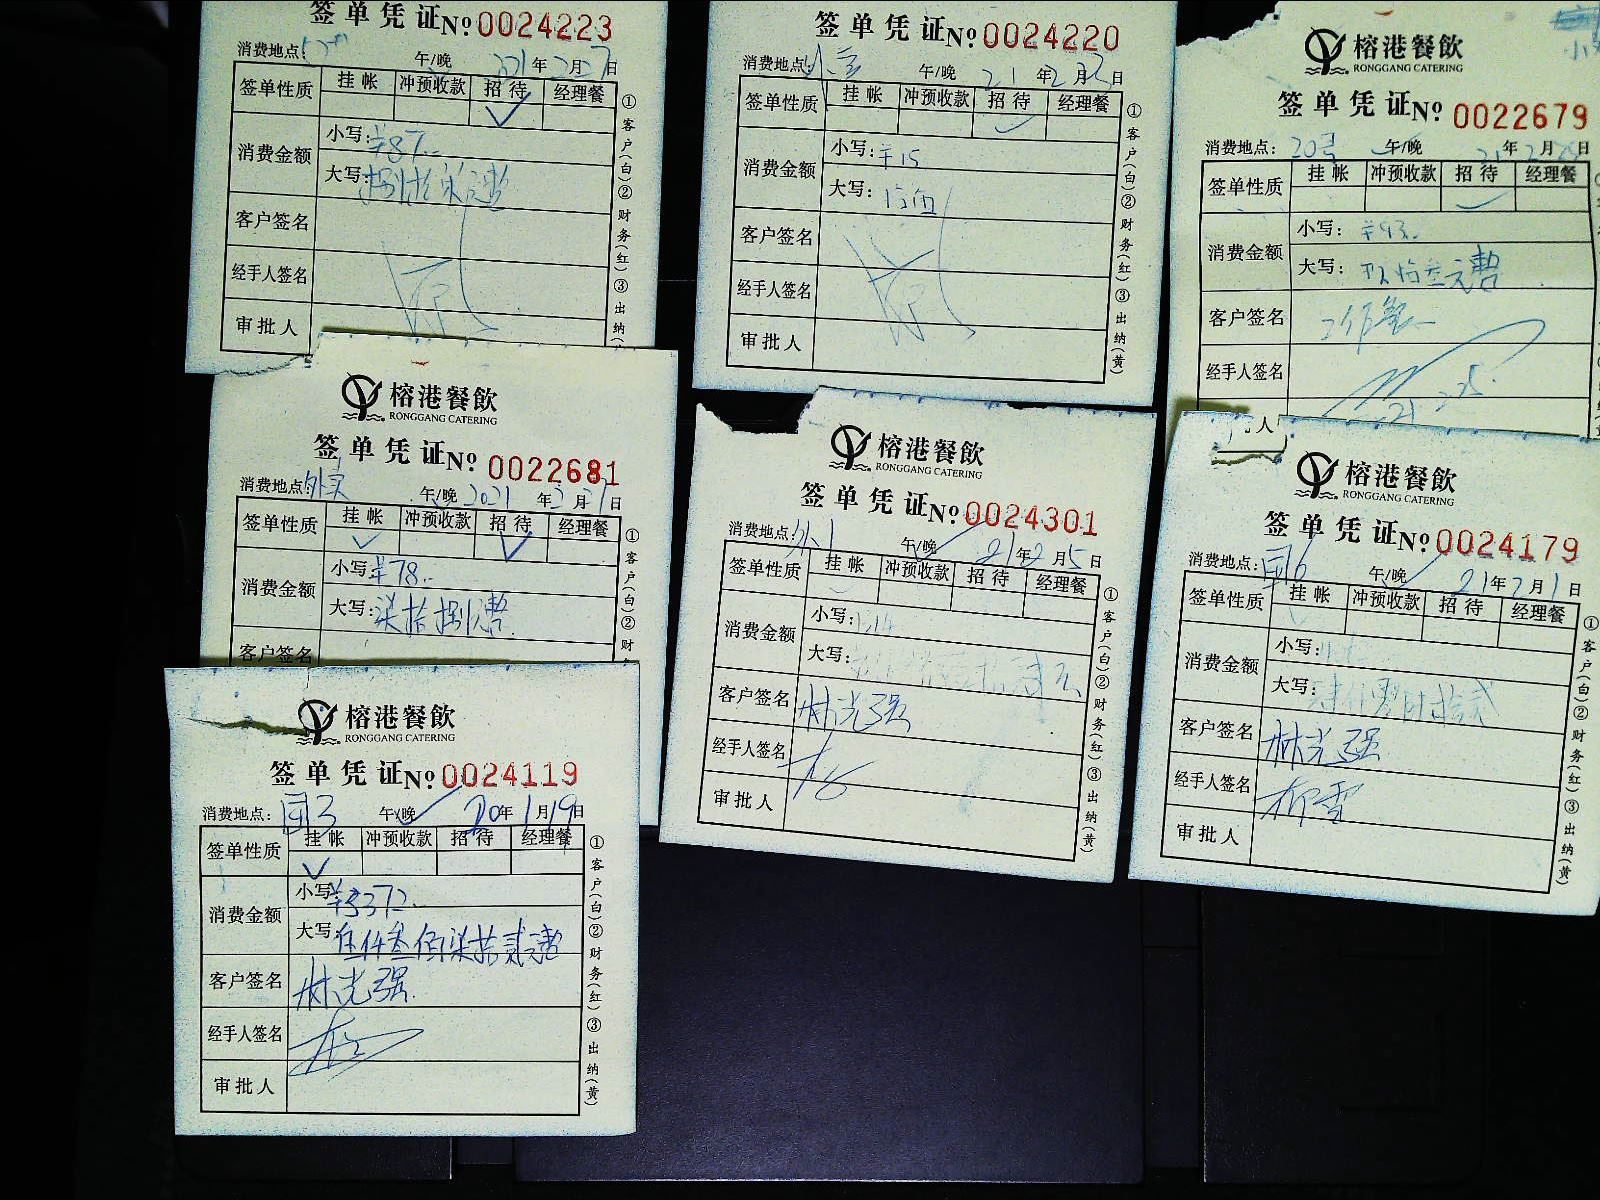 签单凭证 No 0024223
消费地点: 午/晚 221年2月7日
签单性质 挂帐 冲预收款 招待 经理餐
消费金额 小写: ¥87
大写: 捌拾柒元整
客户签名
经手人签名
审批人
①客户(白)②财务(红)③出纳(
签单凭证 No 0024220
消费地点: 午/晚 21年2月2日
签单性质 挂帐 冲预收款 招待 经理餐
消费金额 小写: ¥15
大写:
客户签名
经手人签名
审批人
①客户(白)②财务(红)③出纳(黄)
榕港餐飲
RONGGANG CATERING
签单凭证 No 0022679
消费地点: 午/晚 21年2月25日
签单性质 挂帐 冲预收款 招待 经理餐
消费金额 小写: ¥93.
大写: 玖拾叁元整
客户签名 工作餐
经手人签名
21 2.25.
人
榕港餐飲
RONGGANG CATERING
签单凭证 No 0022681
消费地点: 外卖 午/晚 2021年2月27日
签单性质 挂帐 冲预收款 招待 经理餐
消费金额 小写: ¥78.
大写: 柒拾捌元整
客户签名
①客户(白)②财
榕港餐飲
RONGGANG CATERING
签单凭证 No 0024301
消费地点: 午/晚 21年2月5日
签单性质 挂帐 冲预收款 招待 经理餐
消费金额 小写:
大写:
客户签名 林光强
经手人签名
审批人
①客户(白)②财务(红)③出纳(黄)
榕港餐飲
RONGGANG CATERING
签单凭证 No 0024179
消费地点: 午/晚 21年2月1日
签单性质 挂帐 冲预收款 招待 经理餐
消费金额 小写:
大写:
客户签名 林光强
经手人签名 柳雪
审批人
①客户(白)②财务(红)③出纳(黄)
榕港餐飲
RONGGANG CATERING
签单凭证 No 0024119
消费地点: 午/晚 20年1月19日
签单性质 挂帐 冲预收款 招待 经理餐
消费金额 小写: ¥5372.
大写: 伍仟叁佰柒拾贰元整
客户签名 林光强
经手人签名
审批人
①客户(白)②财务(红)③出纳(黄)